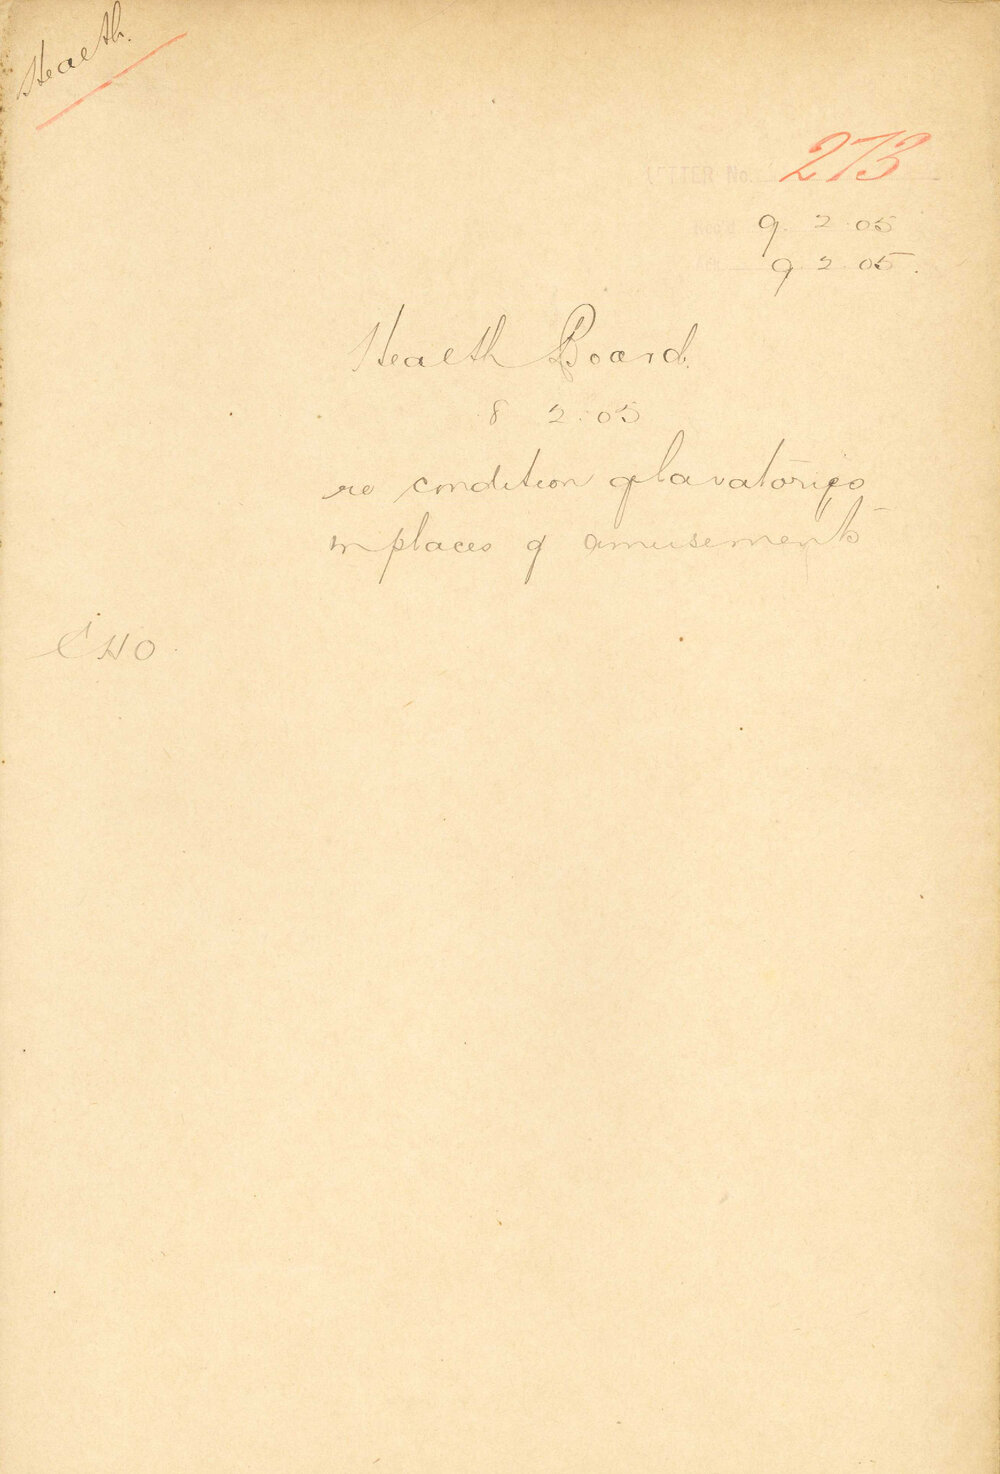 Health.
LETTER No. 273
Rec'd 9. 2. 05
9 2 05.
Health Board.
8 2. 05
re condition of lavatories
in places of amusements
CHO.